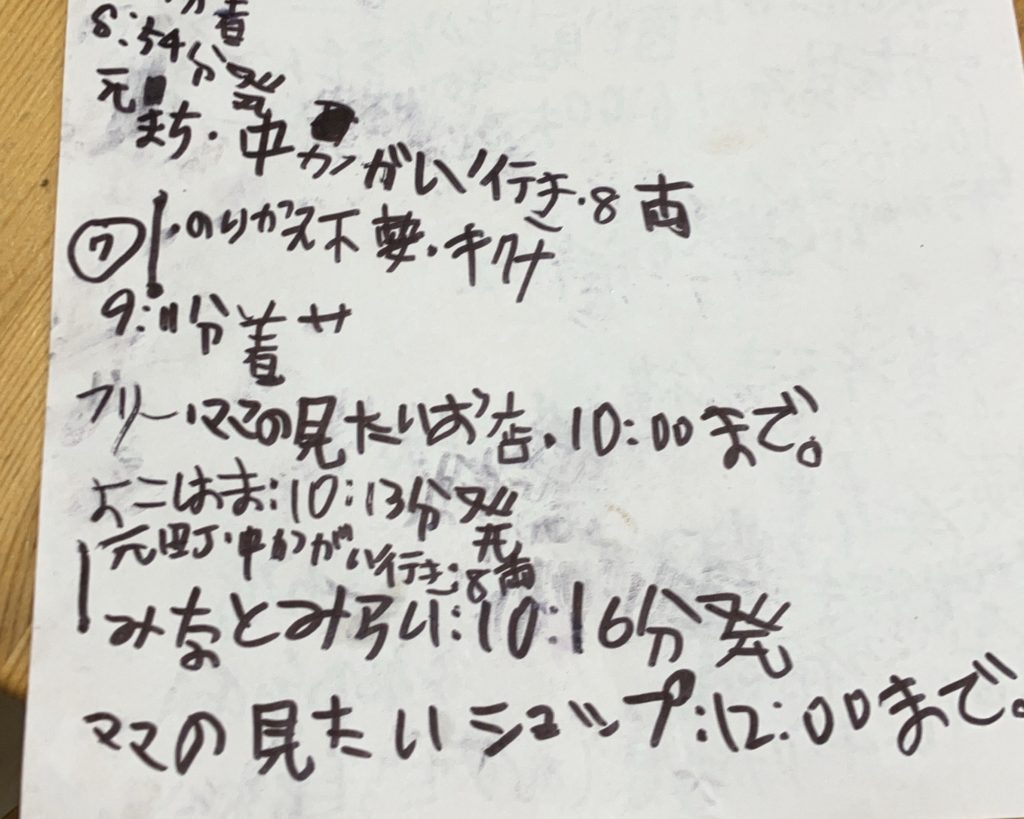 分着
8:54分発
元
まち・中かがい行き・8両
⑦・のりかえ不要・キクナ
9:11分着サ
フリー・ママの見たいお店・10:00まで。
よこはま:10:13分発
元町・中かがい行き:8両
みなとみらい:10:16分発
ママの見たいショップ:12:00まで。